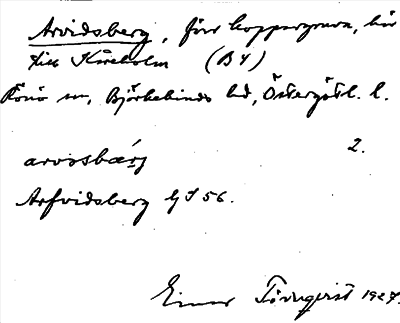 Arvidsberg, förr koppargruva, hör
till Kåreholm (B 4)
Rönö sn, Björkekinds hd, Östergötl. l.
arvɪsbærj 2.
Arfvidsberg GS 56.
Einar Törnqvist 1927.